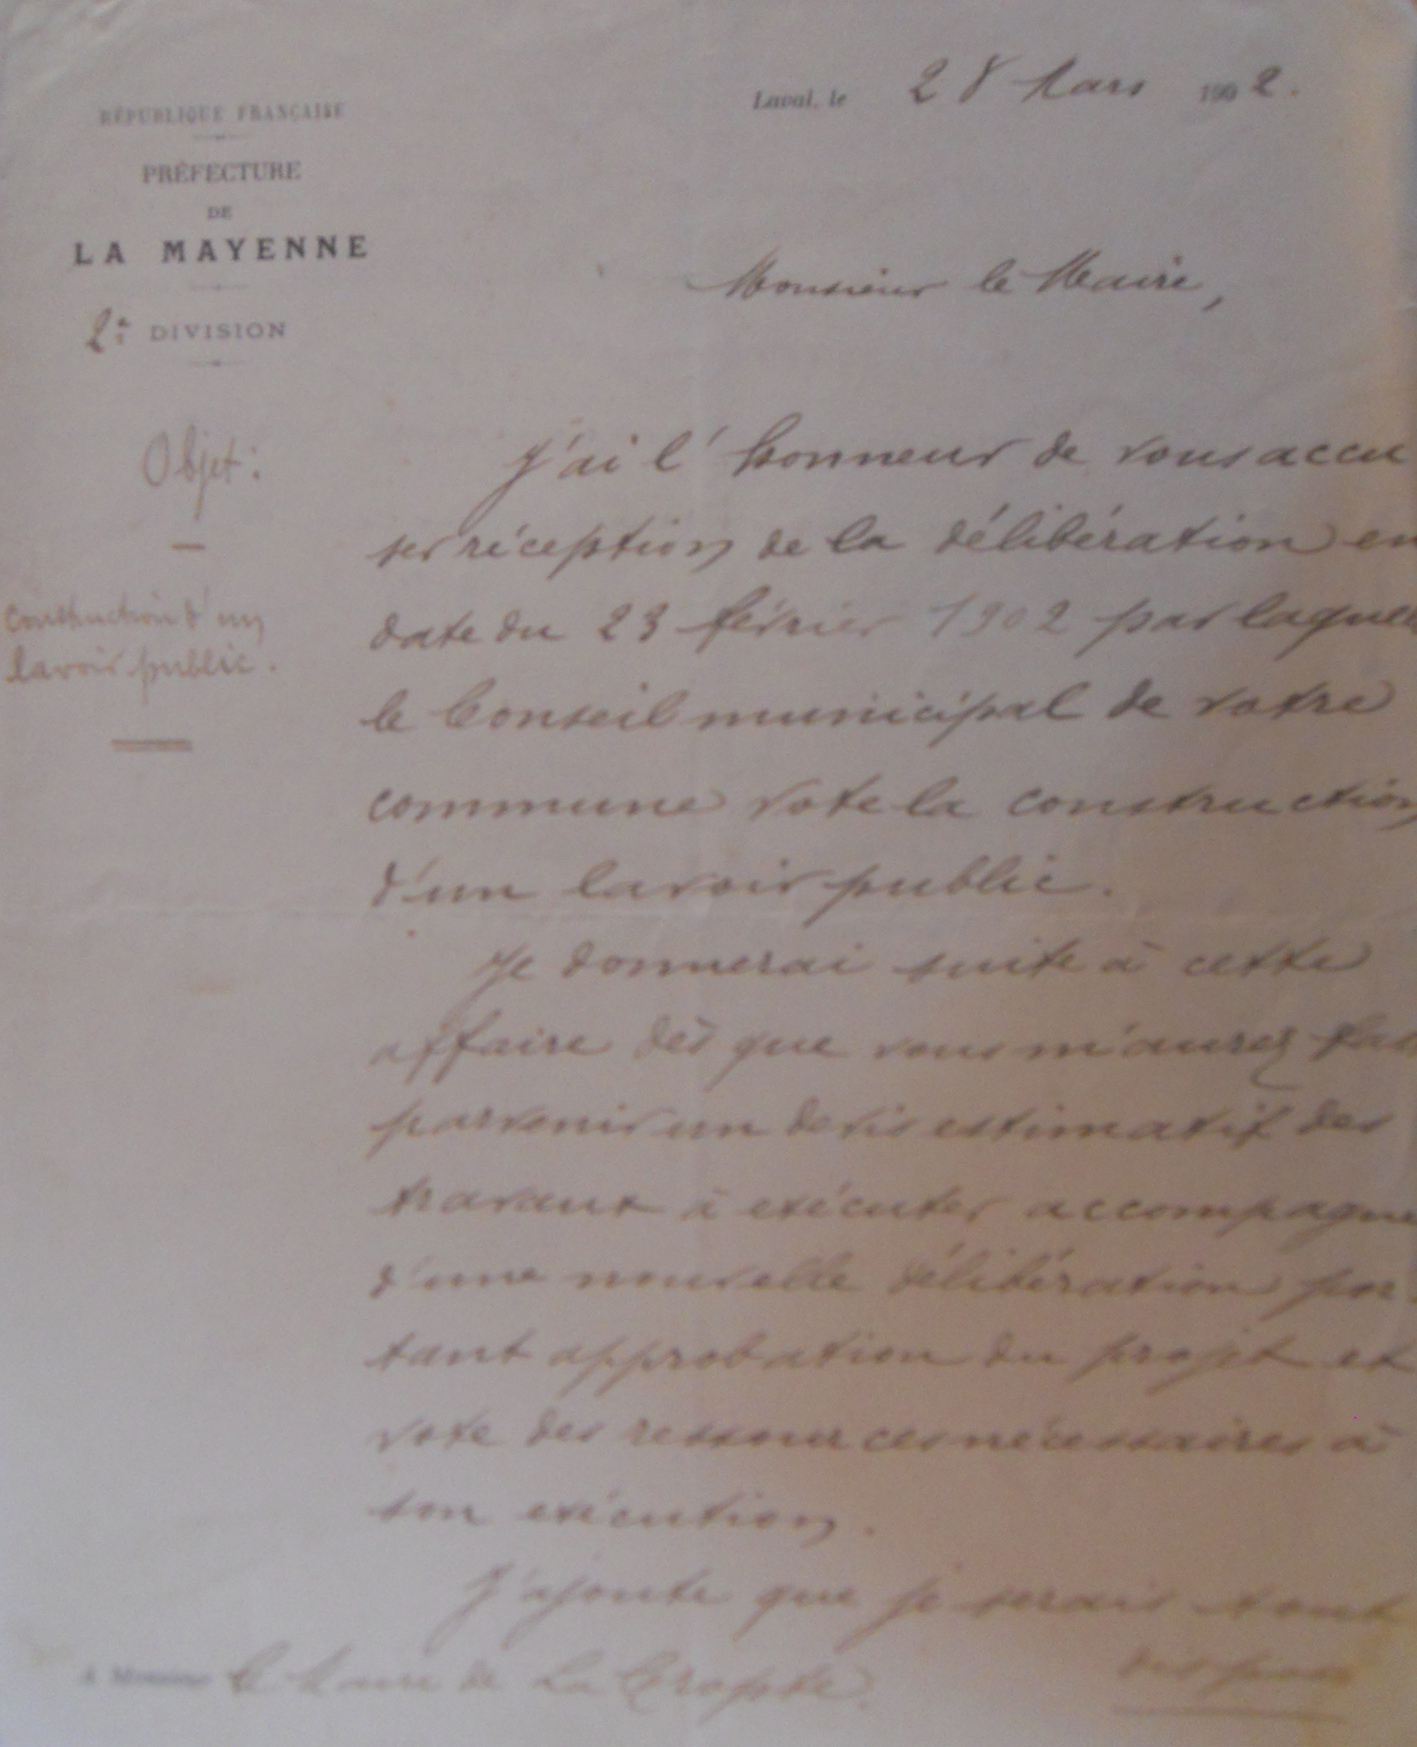 RÉPUBLIQUE FRANÇAISE
PRÉFECTURE
DE
LA MAYENNE
2e DIVISION
Laval, le 28 Mars 1902.
Monsieur le Maire,
Objet:
Construction d'un
lavoir public.
J'ai l'honneur de vous accu
ser réception de la délibération en
date du 23 février 1902 par laquelle
le Conseil municipal de votre
commune vote la construction
d'un lavoir public.
Je donnerai suite à cette
affaire dès que vous m'aurez fait
parvenir un devis estimatif des
travaux à exécuter accompagné
d'une nouvelle délibération por-
tant approbation du projet et
vote des ressources nécessaires à
son exécution.
J'ajoute que je serais tout
disposé
A Monsieur le Maire de La Cropte.